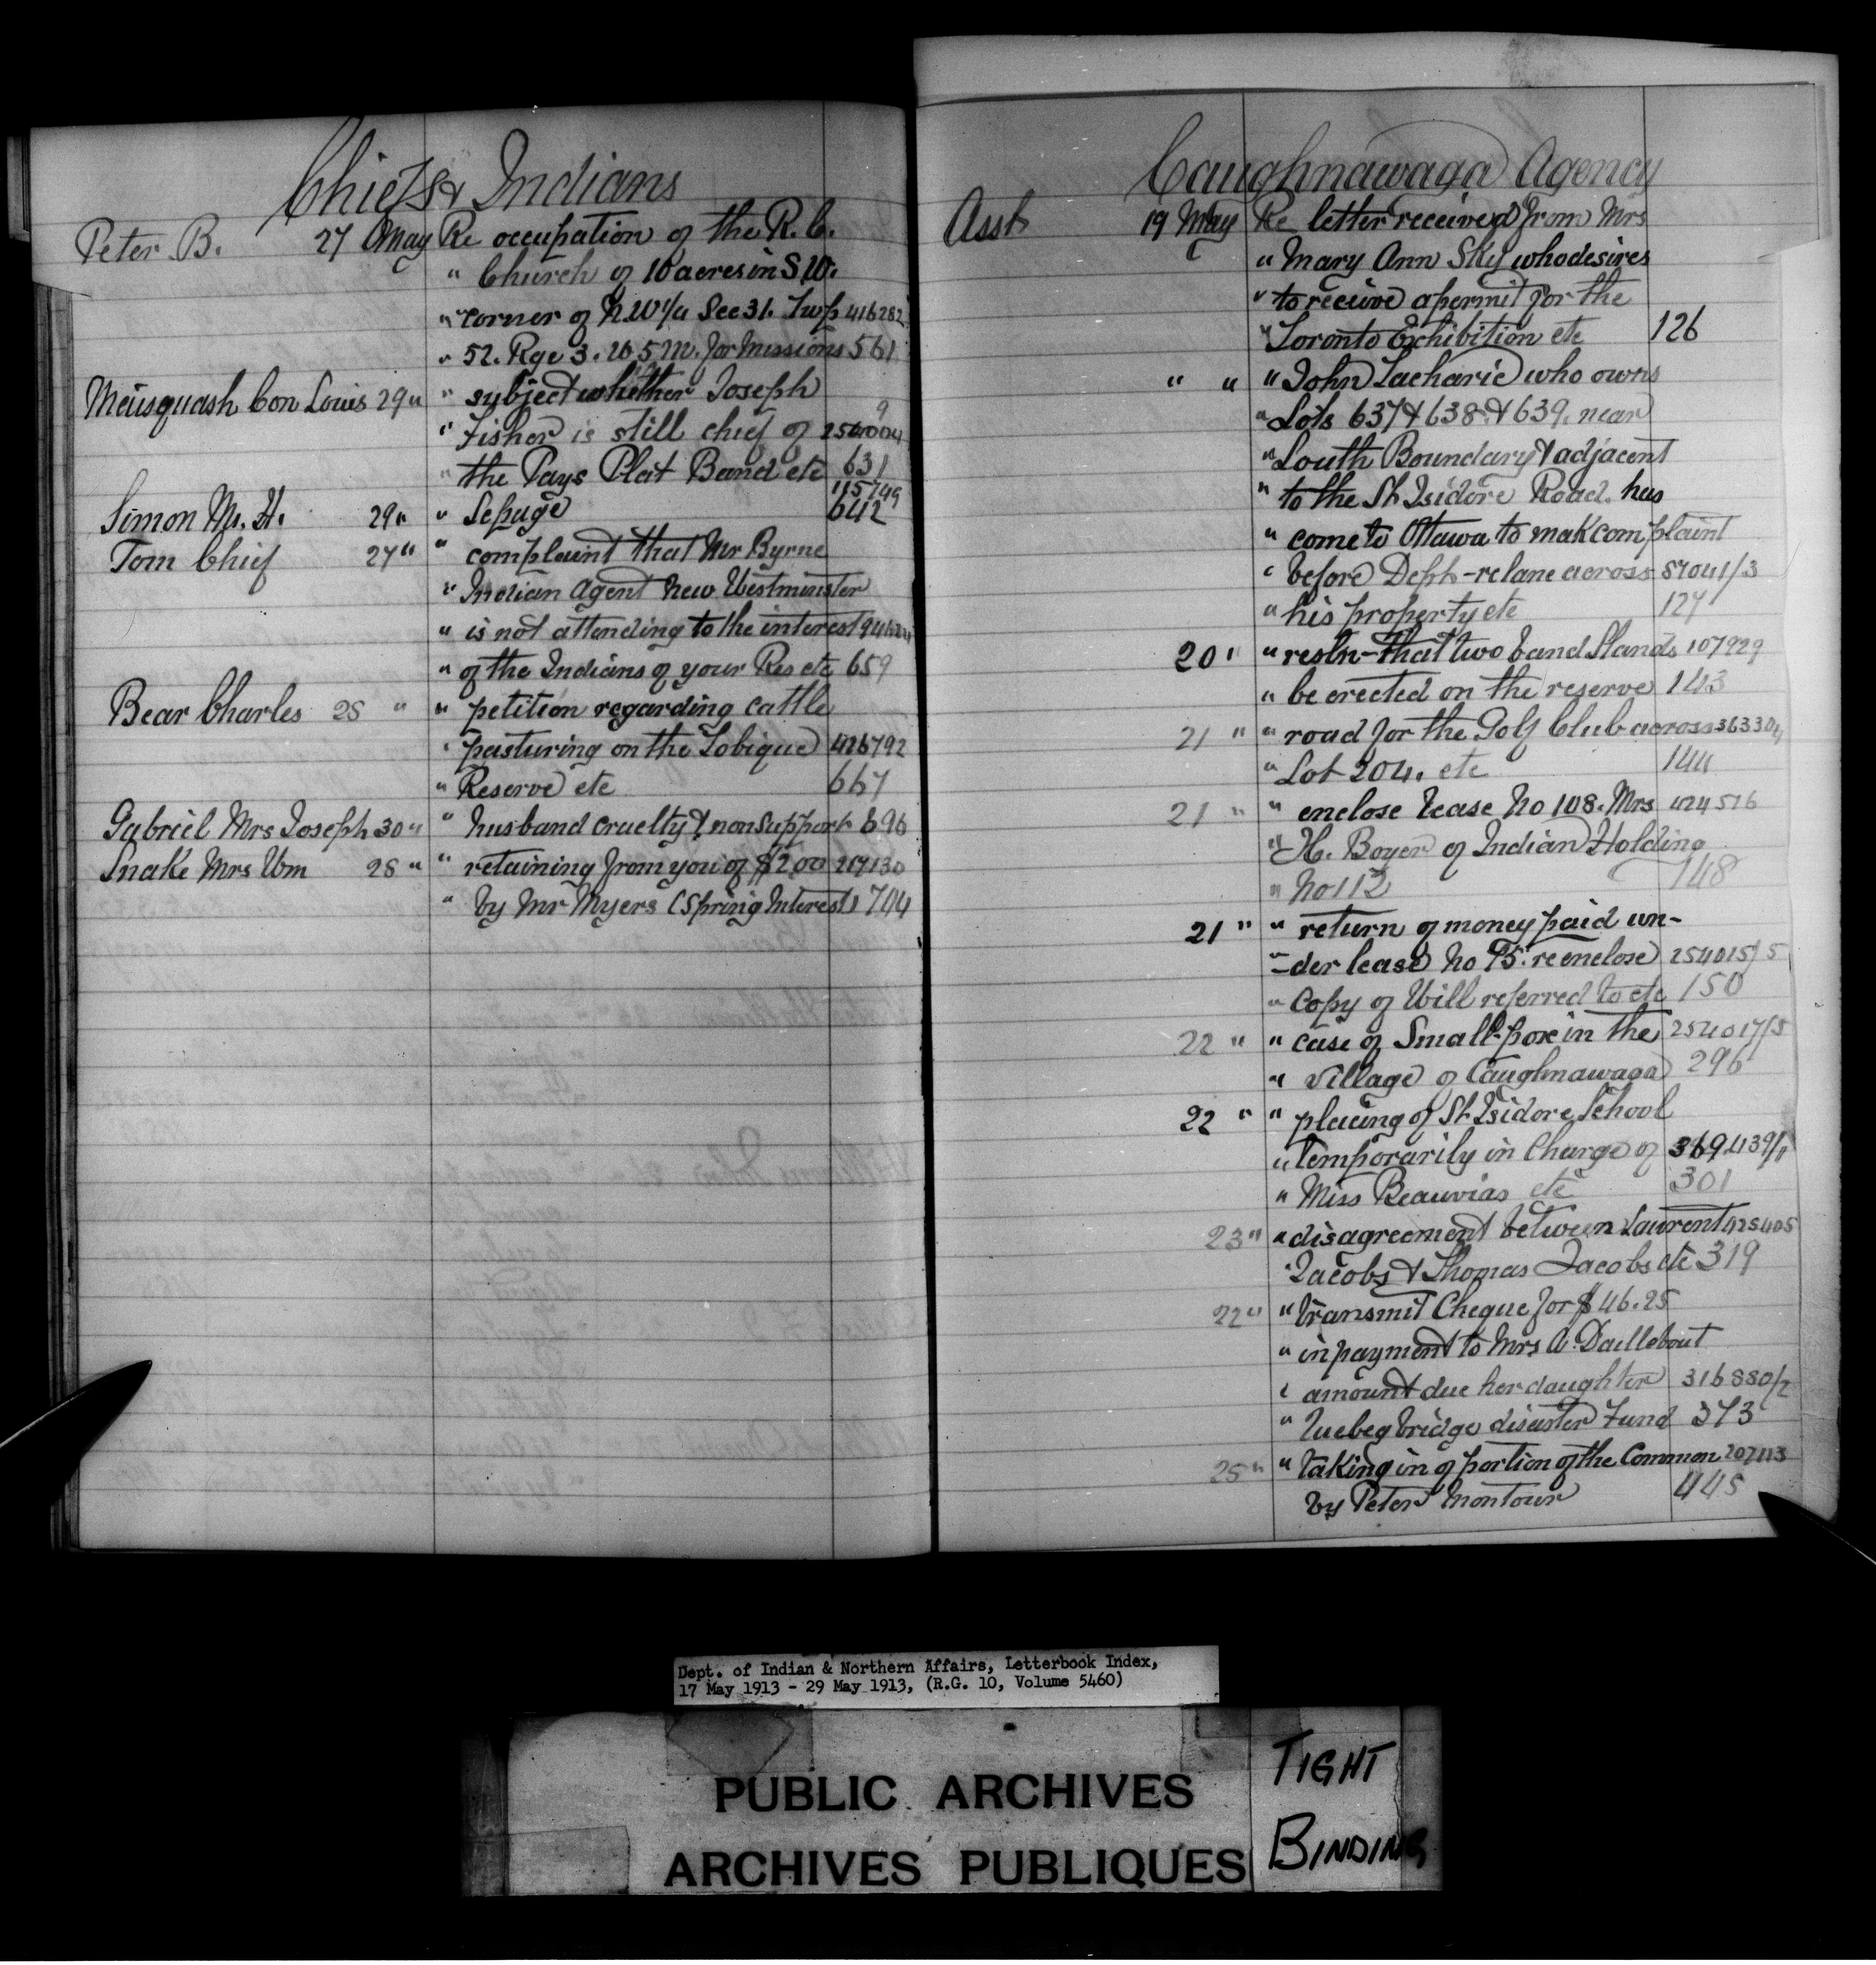 Chiefs & Indians
Peter B. 27 May Re occupation of the R.C.
" Church of 10 acres in S.W.
" corner of N.W¼ Sec 31. Twp 416282
" 52. Rge 3. W 5 M. for Missions 561
Meusquash Con Louis 29 " " subject whether Joseph
" Fisher is still chief of 254004 9
" the Pays Plat Band etc 631
115749
Simon M. H. 29 " " Sepuge 642
Tom Chief 27 " " complaint that Mr Byrne
" Indian Agent New Westminster
" is not attending to the interest
" of the Indians of your Res etc 659
Bear Charles 28 " " petition regarding cattle
" pasturing on the Tobique 426792
" Reserve etc 667
Gabriel Mrs Joseph 30 " " husband cruelty & nonsupport 696
Snake Mrs Wm 28 " " retaining from you of $2.00 217130
" by Mr Myers (Spring Interest) 704
Caughnawaga Agency
Asst 19 May Re letter received from Mrs
" Mary Ann Sky who desires
" to receive a permit for the
" Toronto Exhibition etc 126
" " " John Lacharie who owns
" Lots 637 & 638 & 639. near
" South Boundary & adjacent
" to the St Isidore Road. has
" come to Ottawa to mak complaint
" before Deph - re lane across 87041/3
" his property etc 127
20 " " resln - that two band Stands 107929
" be erected on the reserve 143
21 " " road for the Golf Club across 363304
" Lot 204. etc 144
21 " " enclose lease No 108. Mrs 424516
" H. Boyer of Indian Holding
" No 112 148
21 " " return of money paid un-
" -der lease No 75. re enclose 254015/5
" copy of Will referred to etc 150
22 " " case of Small-pox in the 254017/5
" village of Caughnawaga 296
22 " " placing of St Isidore School
" temporarily in Charge of 369439/1
" Miss Beauvias etc 301
23 " " disagreement between Laurent 425405
" Jacobs & Thomas Jacobs etc 319
22 " " transmit Cheque for $46.25
" in payment to Mrs A. Daillebout
" amount due her daughter 316880/2
" Quebeg bridge disaster Fund 373
25 " " taking in of portion of the Common 207113
by Peter Montour 445
Dept. of Indian & Northern Affairs, Letterbook Index,
17 May 1913 - 29 May 1913, (R.G. 10, Volume 5460)
PUBLIC ARCHIVES
ARCHIVES PUBLIQUES
TIGHT
BINDING